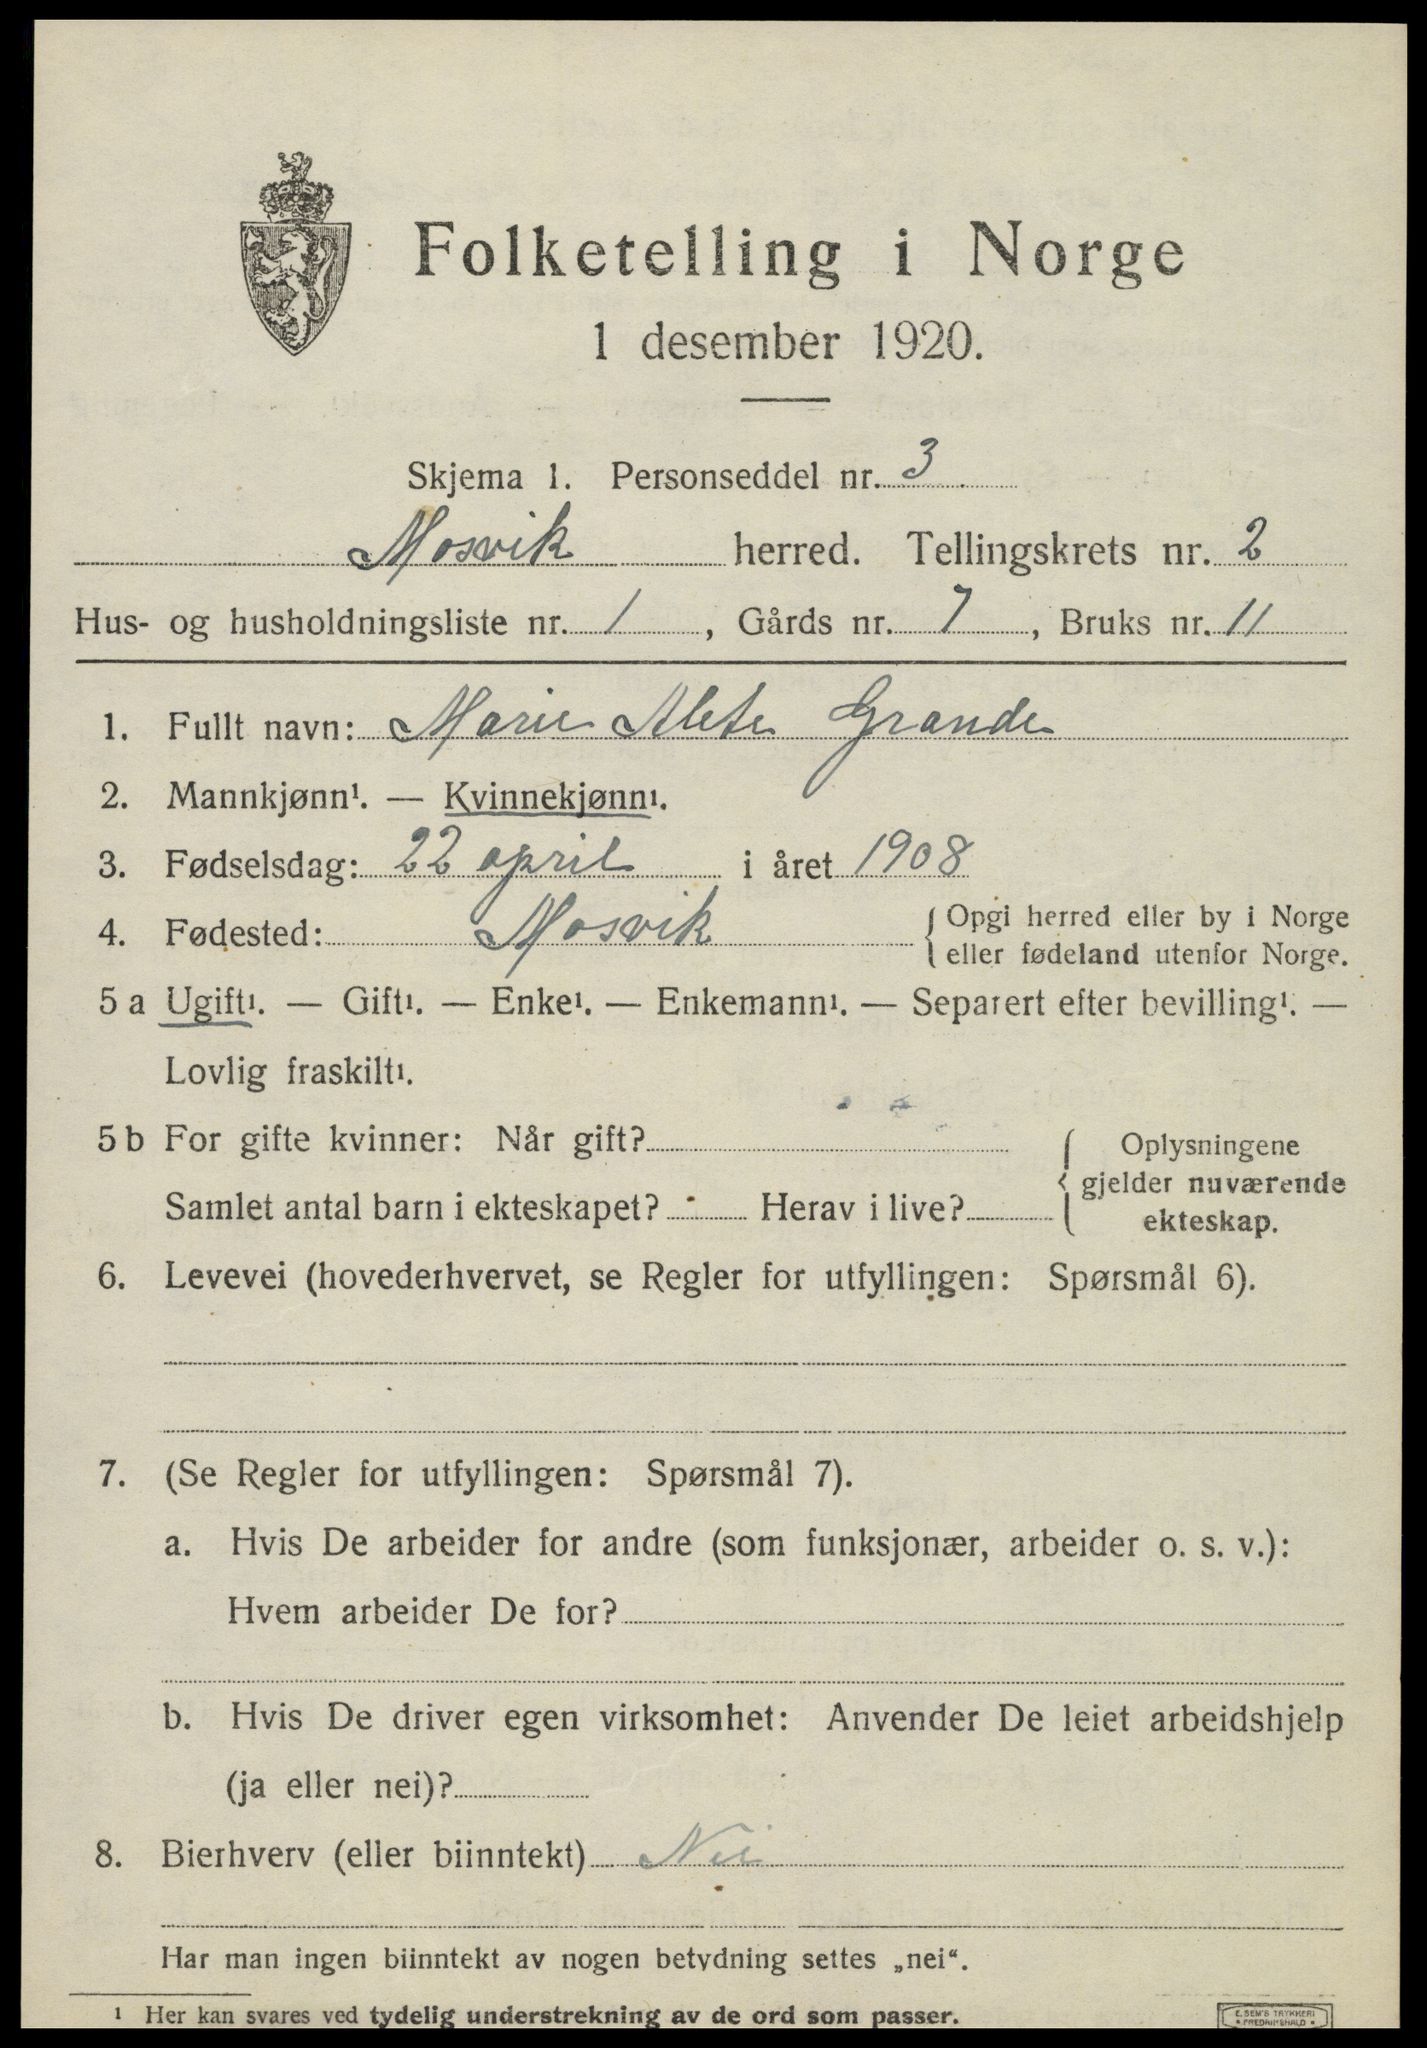 Folketelling i Norge
1 desember 1920.
Skjema 1. Personseddel nr. 3
Mosvik herred. Tellingskrets nr. 2
Hus- og husholdningsliste nr. 1, Gårds nr. 7, Bruks nr. 11
1. Fullt navn: Marie Alete Grande
2. Mannkjønn¹. — Kvinnekjønn¹.
3. Fødselsdag: 22 april i året 1908
4. Fødested: Mosvik { Opgi herred eller by i Norge
eller fødeland utenfor Norge.
5 a Ugift¹. — Gift¹. — Enke¹. — Enkemann¹. — Separert efter bevilling¹. —
Lovlig fraskilt¹.
5 b For gifte kvinner: Når gift? { Oplysningene
gjelder nuværende
Samlet antal barn i ekteskapet? Herav i live? ekteskap.
6. Levevei (hovederhvervet, se Regler for utfyllingen: Spørsmål 6).
7. (Se Regler for utfyllingen: Spørsmål 7).
a. Hvis De arbeider for andre (som funksjonær, arbeider o. s. v.):
Hvem arbeider De for?
b. Hvis De driver egen virksomhet: Anvender De leiet arbeidshjelp
(ja eller nei)?
8. Bierhverv (eller biinntekt) Nei
Har man ingen biinntekt av nogen betydning settes „nei“.
¹ Her kan svares ved tydelig understrekning av de ord som passer.
E. SEM'S TRYKKERI
• FREDRIKSHALD •